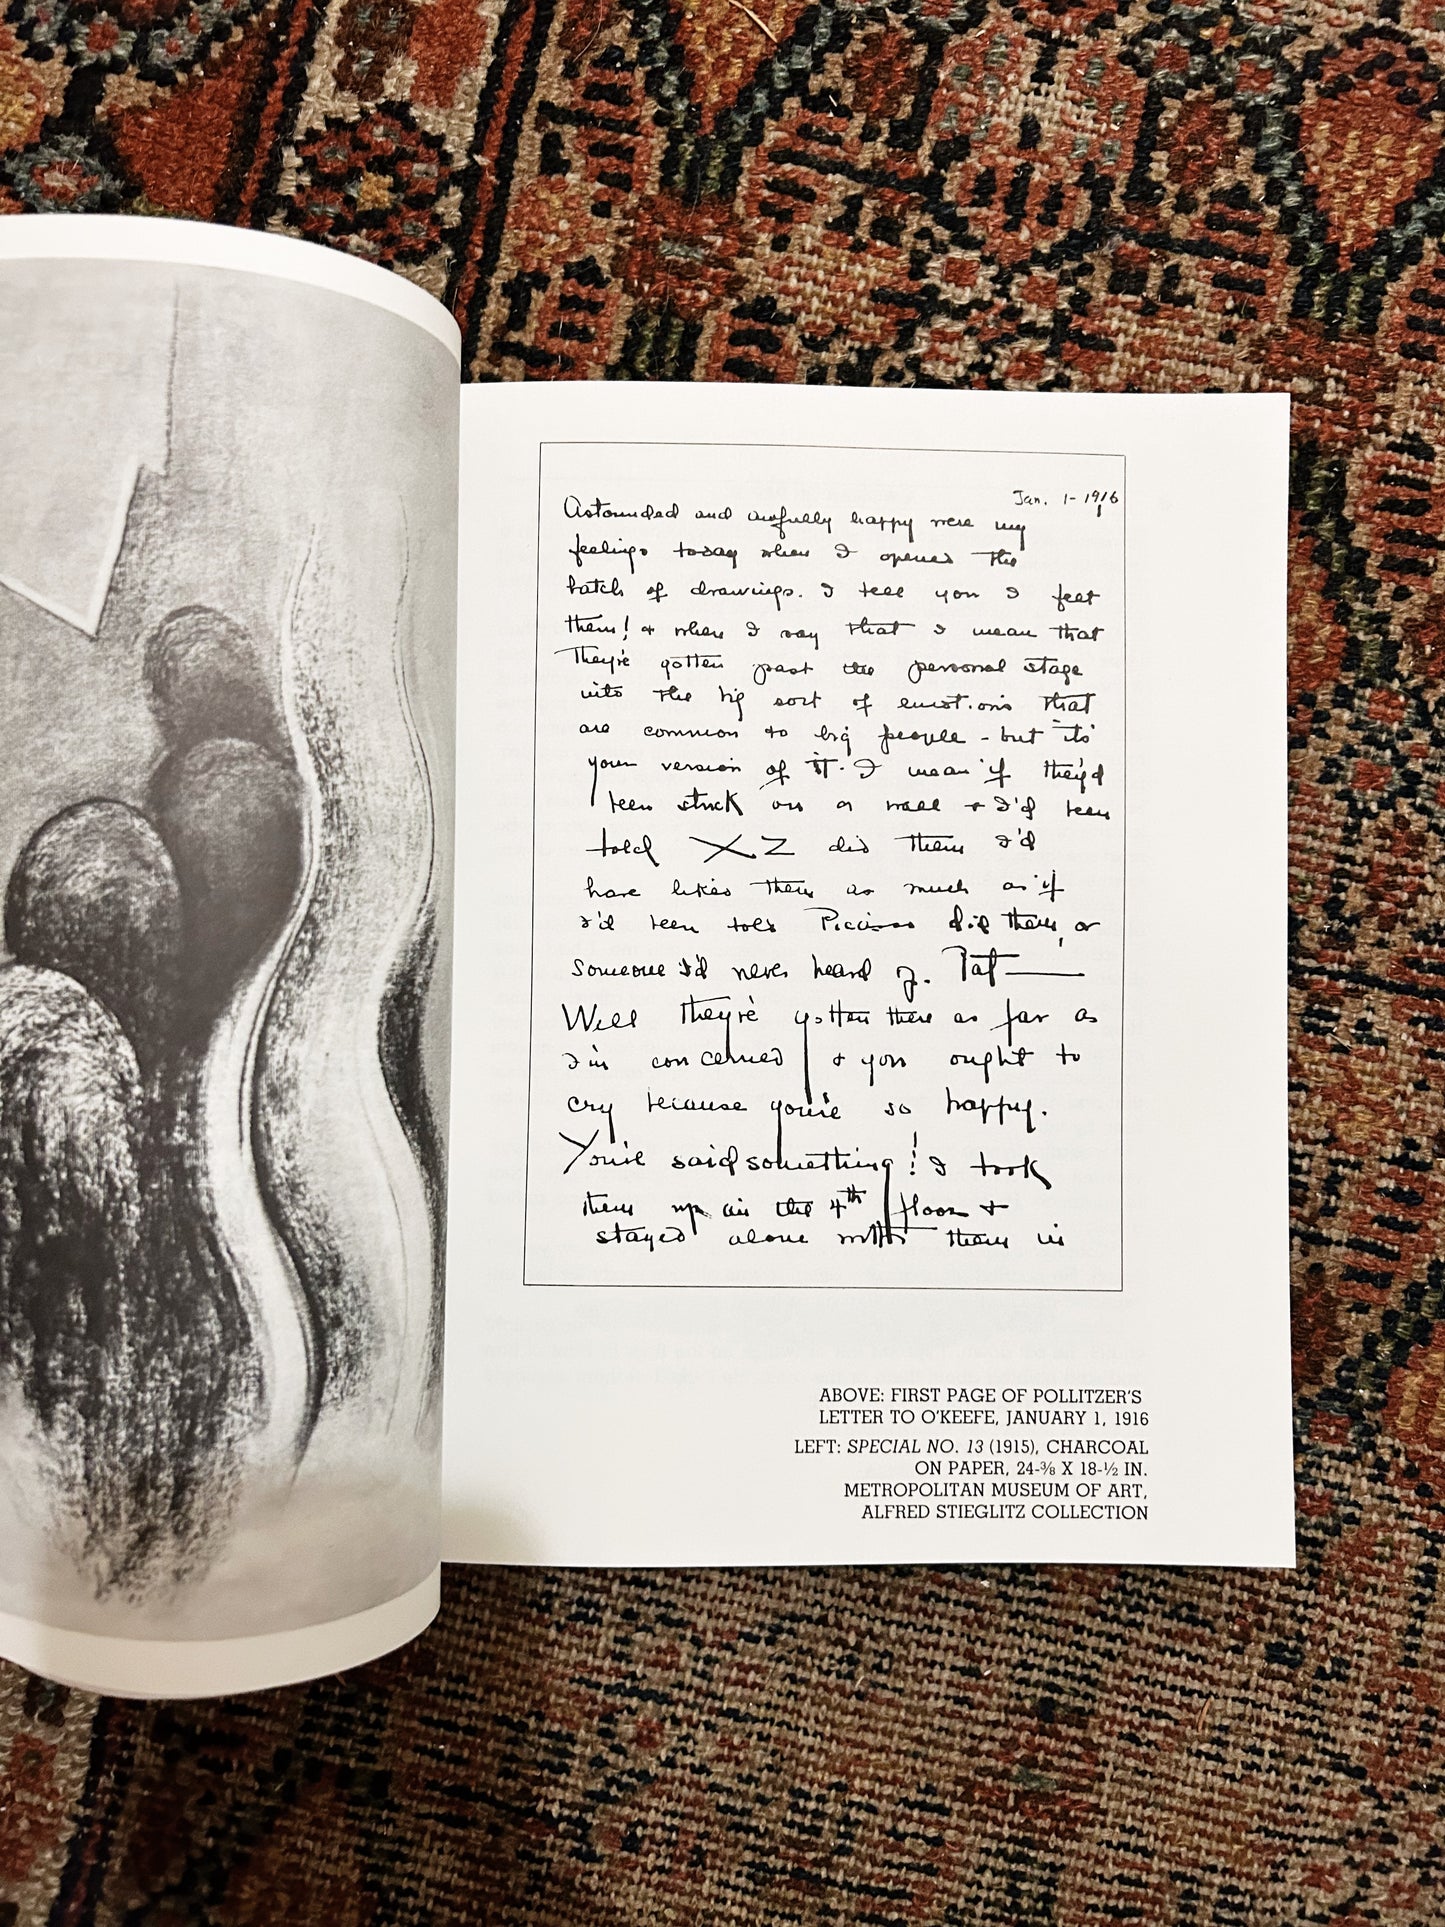 Jan. 1-1916
Astounded and awfully happy were my
feelings today when I opened the
batch of drawings. I tell you I felt
them! & when I say that I mean that
They're gotten past the personal stage
into the big sort of emotions that
are common to big people - but it's
your version of it. I mean if they'd
been stuck on a wall & I'd been
told XZ did them I'd
have liked them as much as if
I'd been told Picasso did them, or
someone I'd never heard of. Pat—
Well they're gotten there as far as
I'm concerned & you ought to
cry because you're so happy.
You've said something! I took
them up in the 4th floor &
stayed alone with them in
ABOVE: FIRST PAGE OF POLLITZER'S
LETTER TO O'KEEFE, JANUARY 1, 1916
LEFT: SPECIAL NO. 13 (1915), CHARCOAL
ON PAPER, 24-⅜ X 18-½ IN.
METROPOLITAN MUSEUM OF ART,
ALFRED STIEGLITZ COLLECTION